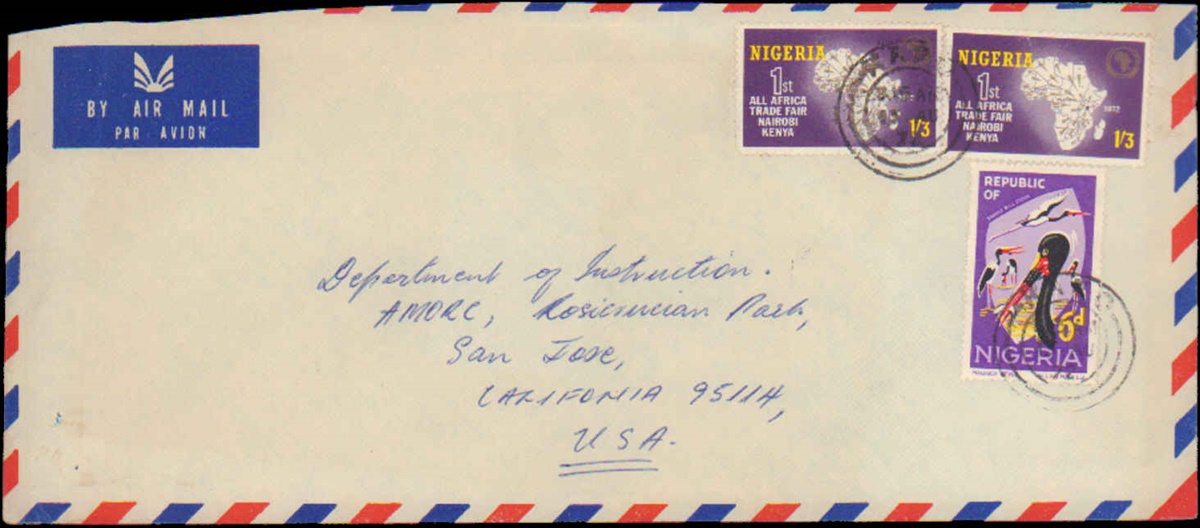 BY AIR MAIL
PAR AVION
NIGERIA
1st
ALL AFRICA
TRADE FAIR
NAIROBI
KENYA
1/3
NIGERIA
1st
ALL AFRICA
TRADE FAIR
NAIROBI
KENYA
1972
1/3
REPUBLIC
OF
6d
NIGERIA
Department of Instruction.
AMORC, Rosicrucian Park,
San Jose,
CALIFONIA 95114,
USA.